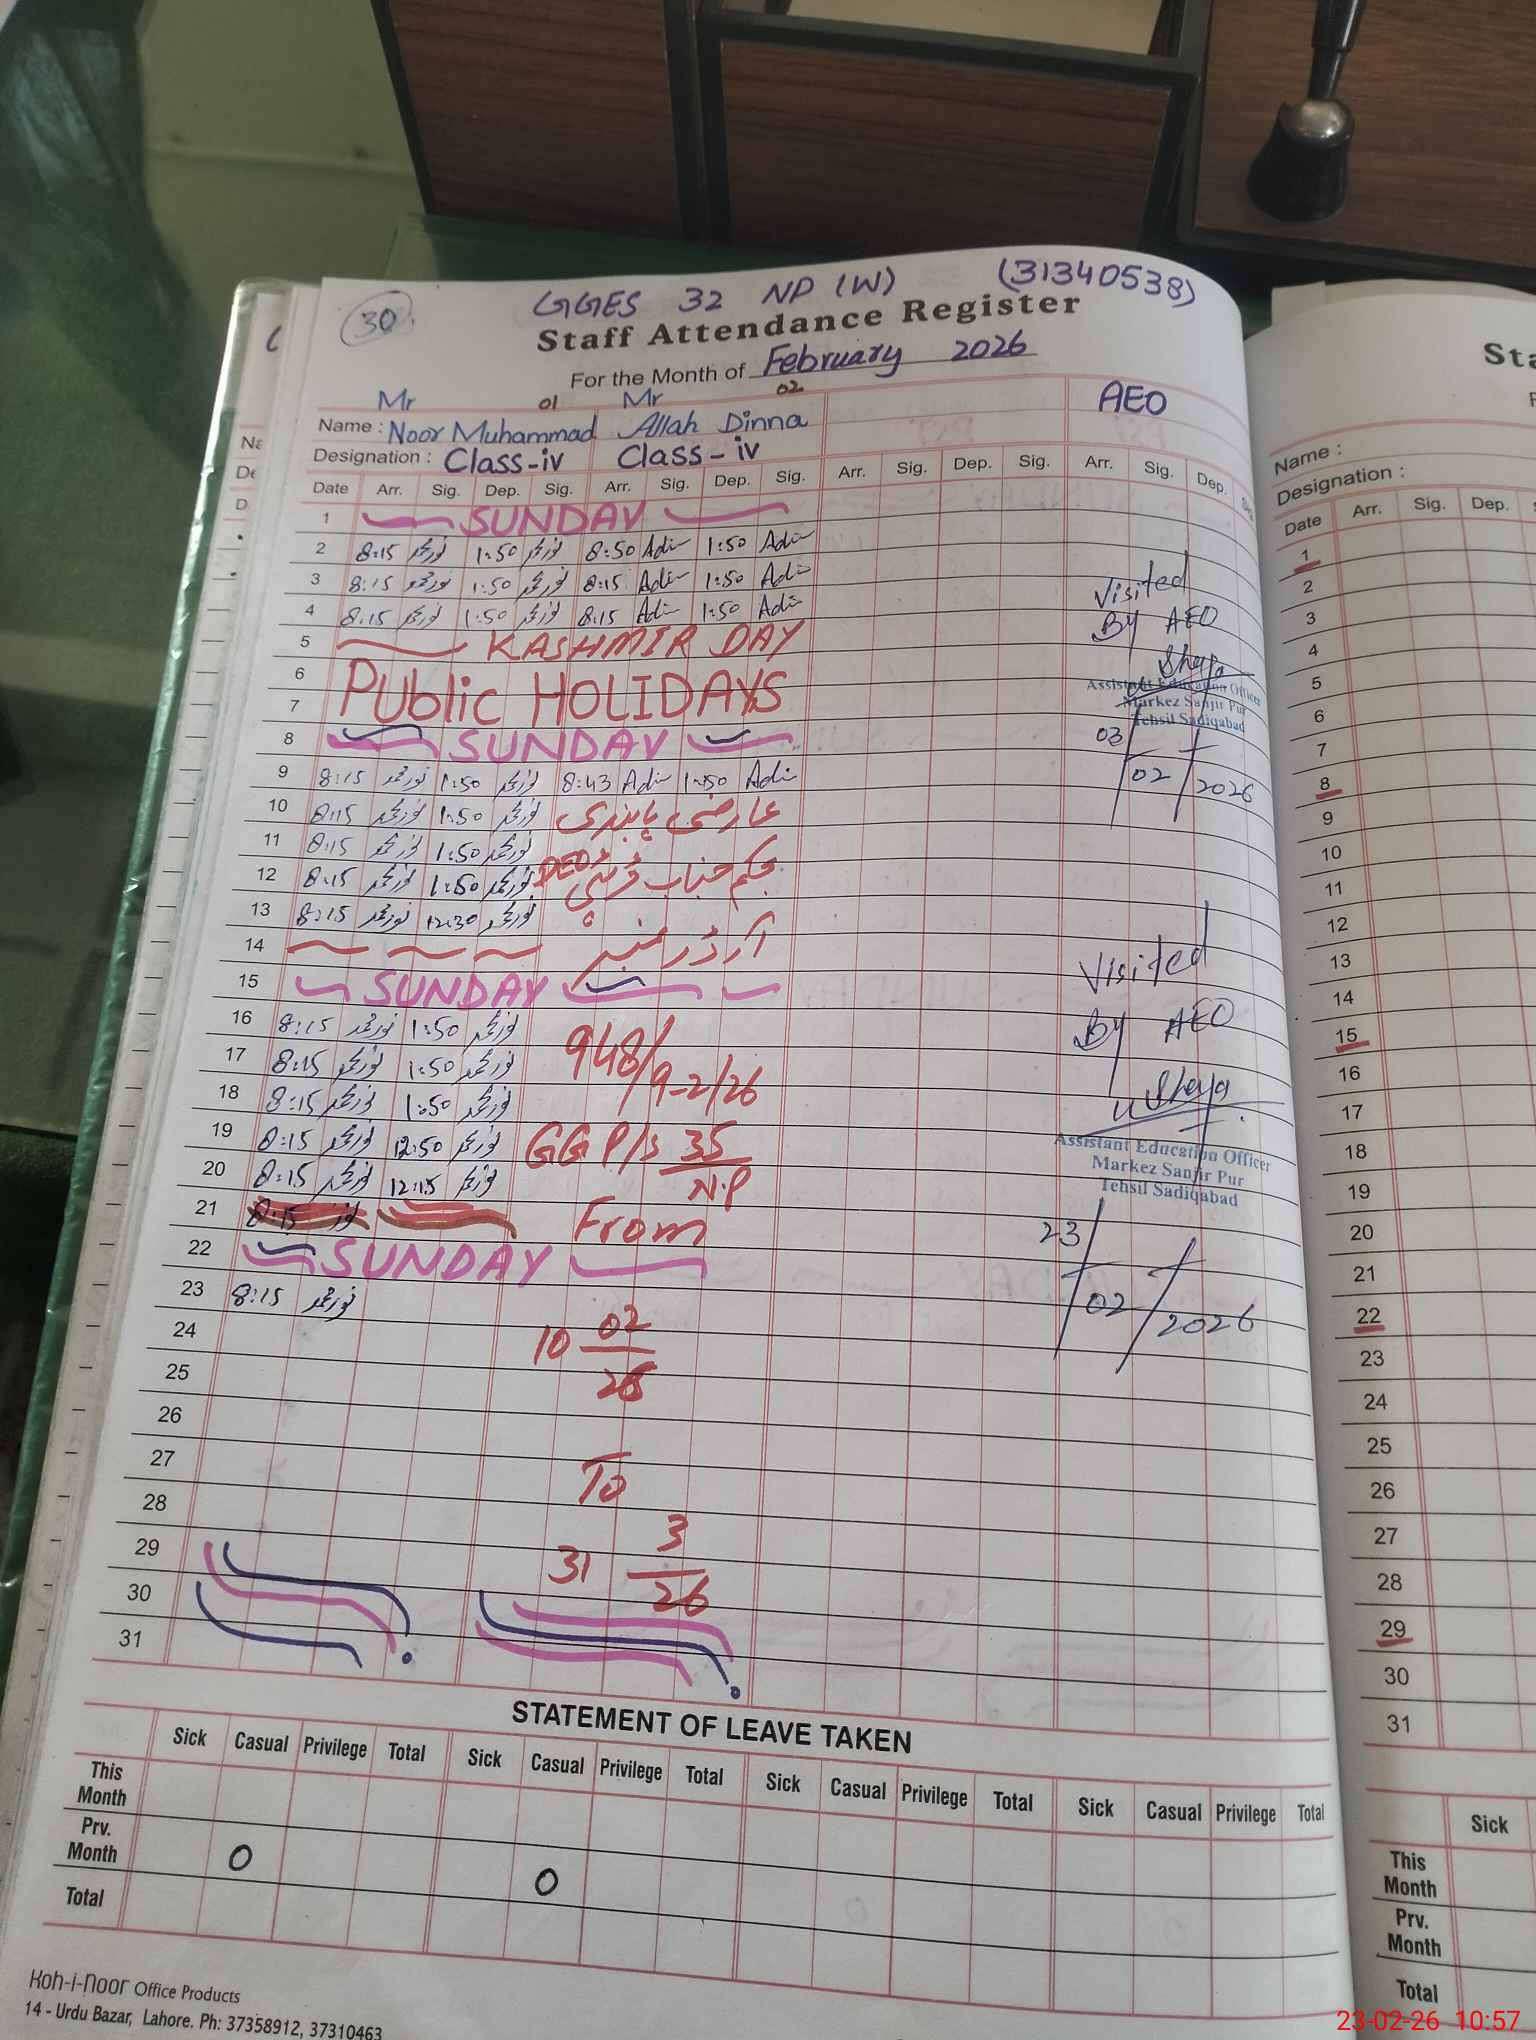 30
GGES 32 NP (W) (31340538)
Staff Attendance Register
For the Month of February 2026
Mr 01 Mr 02 AEO
Name : Noor Muhammad Allah Dinna
Designation : Class-iv Class-iv
Date Arr. Sig. Dep. Sig. Arr. Sig. Dep. Sig. Arr. Sig. Dep. Sig. Arr. Sig. Dep.
1 SUNDAY
2 8:15 نور محمد 1:50 نور محمد 8:50 1:50
3 8:15 نور محمد 1:50 نور محمد 8:15 1:50
4 8:15 نور محمد 1:50 نور محمد 8:15 1:50
5 KASHMIR DAY
6 Public HOLIDAYS
7
8 SUNDAY
9 8:15 نور محمد 1:50 نور محمد 8:43 1:50
10 8:15 نور محمد 1:50 نور محمد عارضی پابندی
11 8:15 نور محمد 1:50 نور محمد
12 8:15 نور محمد 1:50 نور محمد بحکم جناب ڈپٹی DEO
13 8:15 نور محمد 12:30 نور محمد
14 آرڈر نمبر
15 SUNDAY
16 8:15 نور محمد 1:50 نور محمد
17 8:15 نور محمد 1:50 نور محمد 948/9-2/26
18 8:15 نور محمد 1:50 نور محمد
19 8:15 نور محمد 12:50 نور محمد GGP/S 35
20 8:15 نور محمد 12:15 نور محمد N.P
21 8:15 نور From
22 SUNDAY
23 8:15 نور محمد
24 10 02
25 26
26
27 To
28
29 31 3
30 26
31
Visited
By AEO
Assistant Education Officer
Markez Sanjir Pur
Tehsil Sadiqabad
03/02/2026
Visited
By AEO
Assistant Education Officer
Markez Sanjir Pur
Tehsil Sadiqabad
23/02/2026
STATEMENT OF LEAVE TAKEN
Sick Casual Privilege Total Sick Casual Privilege Total Sick Casual Privilege Total Sick Casual Privilege Total
This Month
Prv. Month 0 0
Total
Koh-i-noor Office Products
14 - Urdu Bazar, Lahore. Ph: 37358912, 37310463
Sta
Name :
Designation :
Date Arr. Sig. Dep.
1
2
3
4
5
6
7
8
9
10
11
12
13
14
15
16
17
18
19
20
21
22
23
24
25
26
27
28
29
30
31
Sick
This Month
Prv. Month
Total
23-02-26 10:57